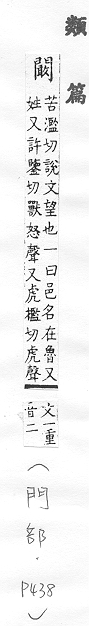 類篇
闞
苦濫切說文望也一曰邑名在魯又
姓又許鑒切獸怒聲又虎檻切虎聲
文一重
音二
(門部．P438)